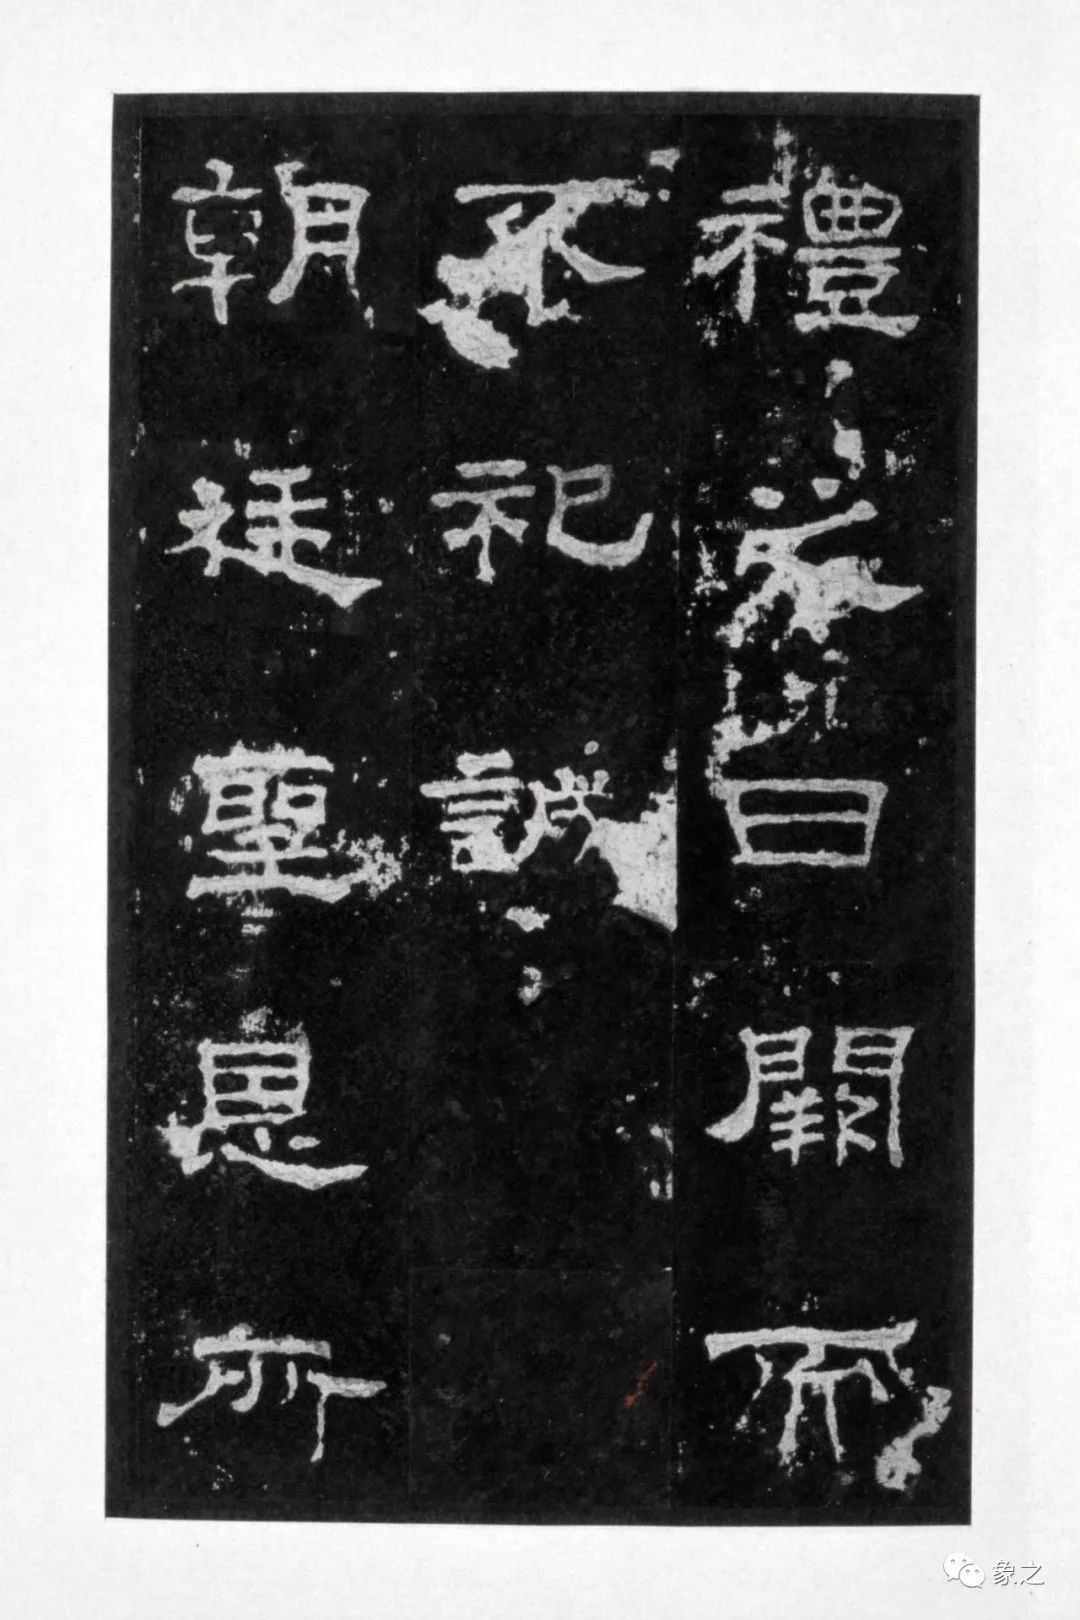 禮之日闕而
不祀誠
朝廷聖恩所
象之